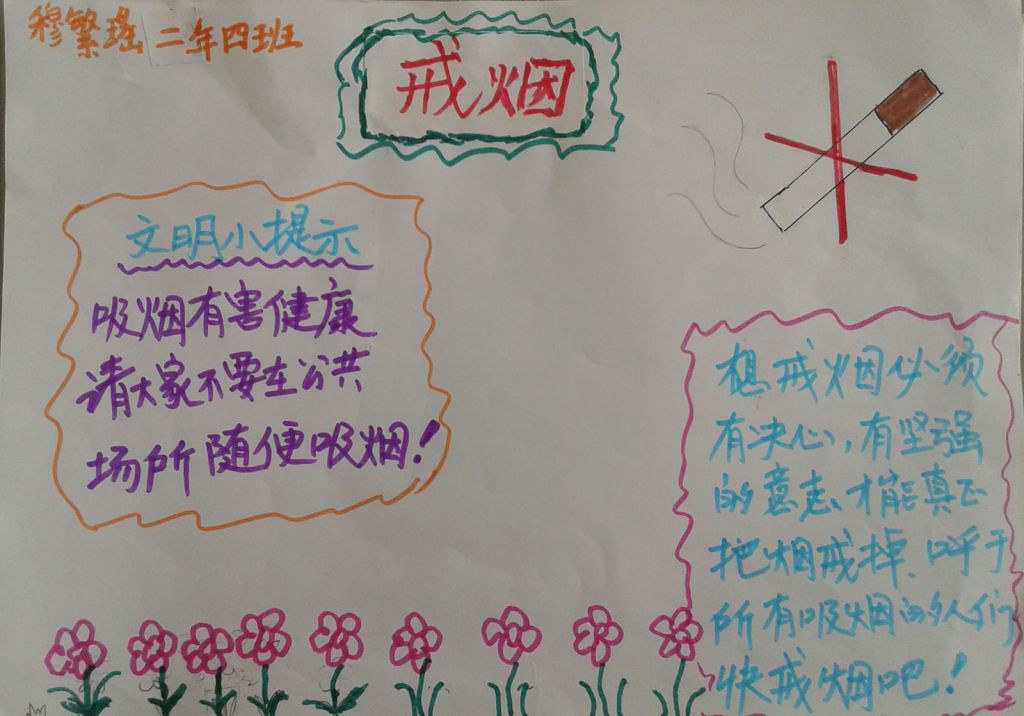 穆繁瑶 二年四班
戒烟
文明小提示
吸烟有害健康
请大家不要在公共
场所随便吸烟!
想戒烟必须
有决心,有坚强
的意志才能真正
把烟戒掉、呼于
所有吸烟的人们
快戒烟吧!